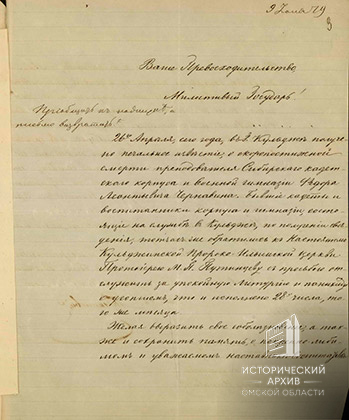 9 Июня 79
Ваше Превосходительство
Милостивый Государь!
26го Апреля, сего года, въ г. Кульдже получе-
но печальное известіе, о скоропостижной
смерти преподавателя Сибирскаго кадет-
скаго корпуса и военной гимназіи Ѳедора
Леонтьевича Чернавина, бывшіе кадеты и
воспитанники корпуса и гимназіи состоя-
щіе на службе въ Кульдже, по полученіи све-
денія, тотчасъ же обратились къ Настоятелю
Кульджинской Пророко Ильинской церкви
Протоіерею М. Я. Путинцеву съ просьбою от-
служить за упокойную Литургію и панихиду
о усопшемъ, что и исполнено 28го числа, то-
го же месяца
Желая выразить свое соболезнованіе, а так-
же и сохранить память, о нашемъ люби-
момъ и уважаемомъ наставнике
ИСТОРИЧЕСКИЙ
АРХИВ
ОМСКОЙ ОБЛАСТИ